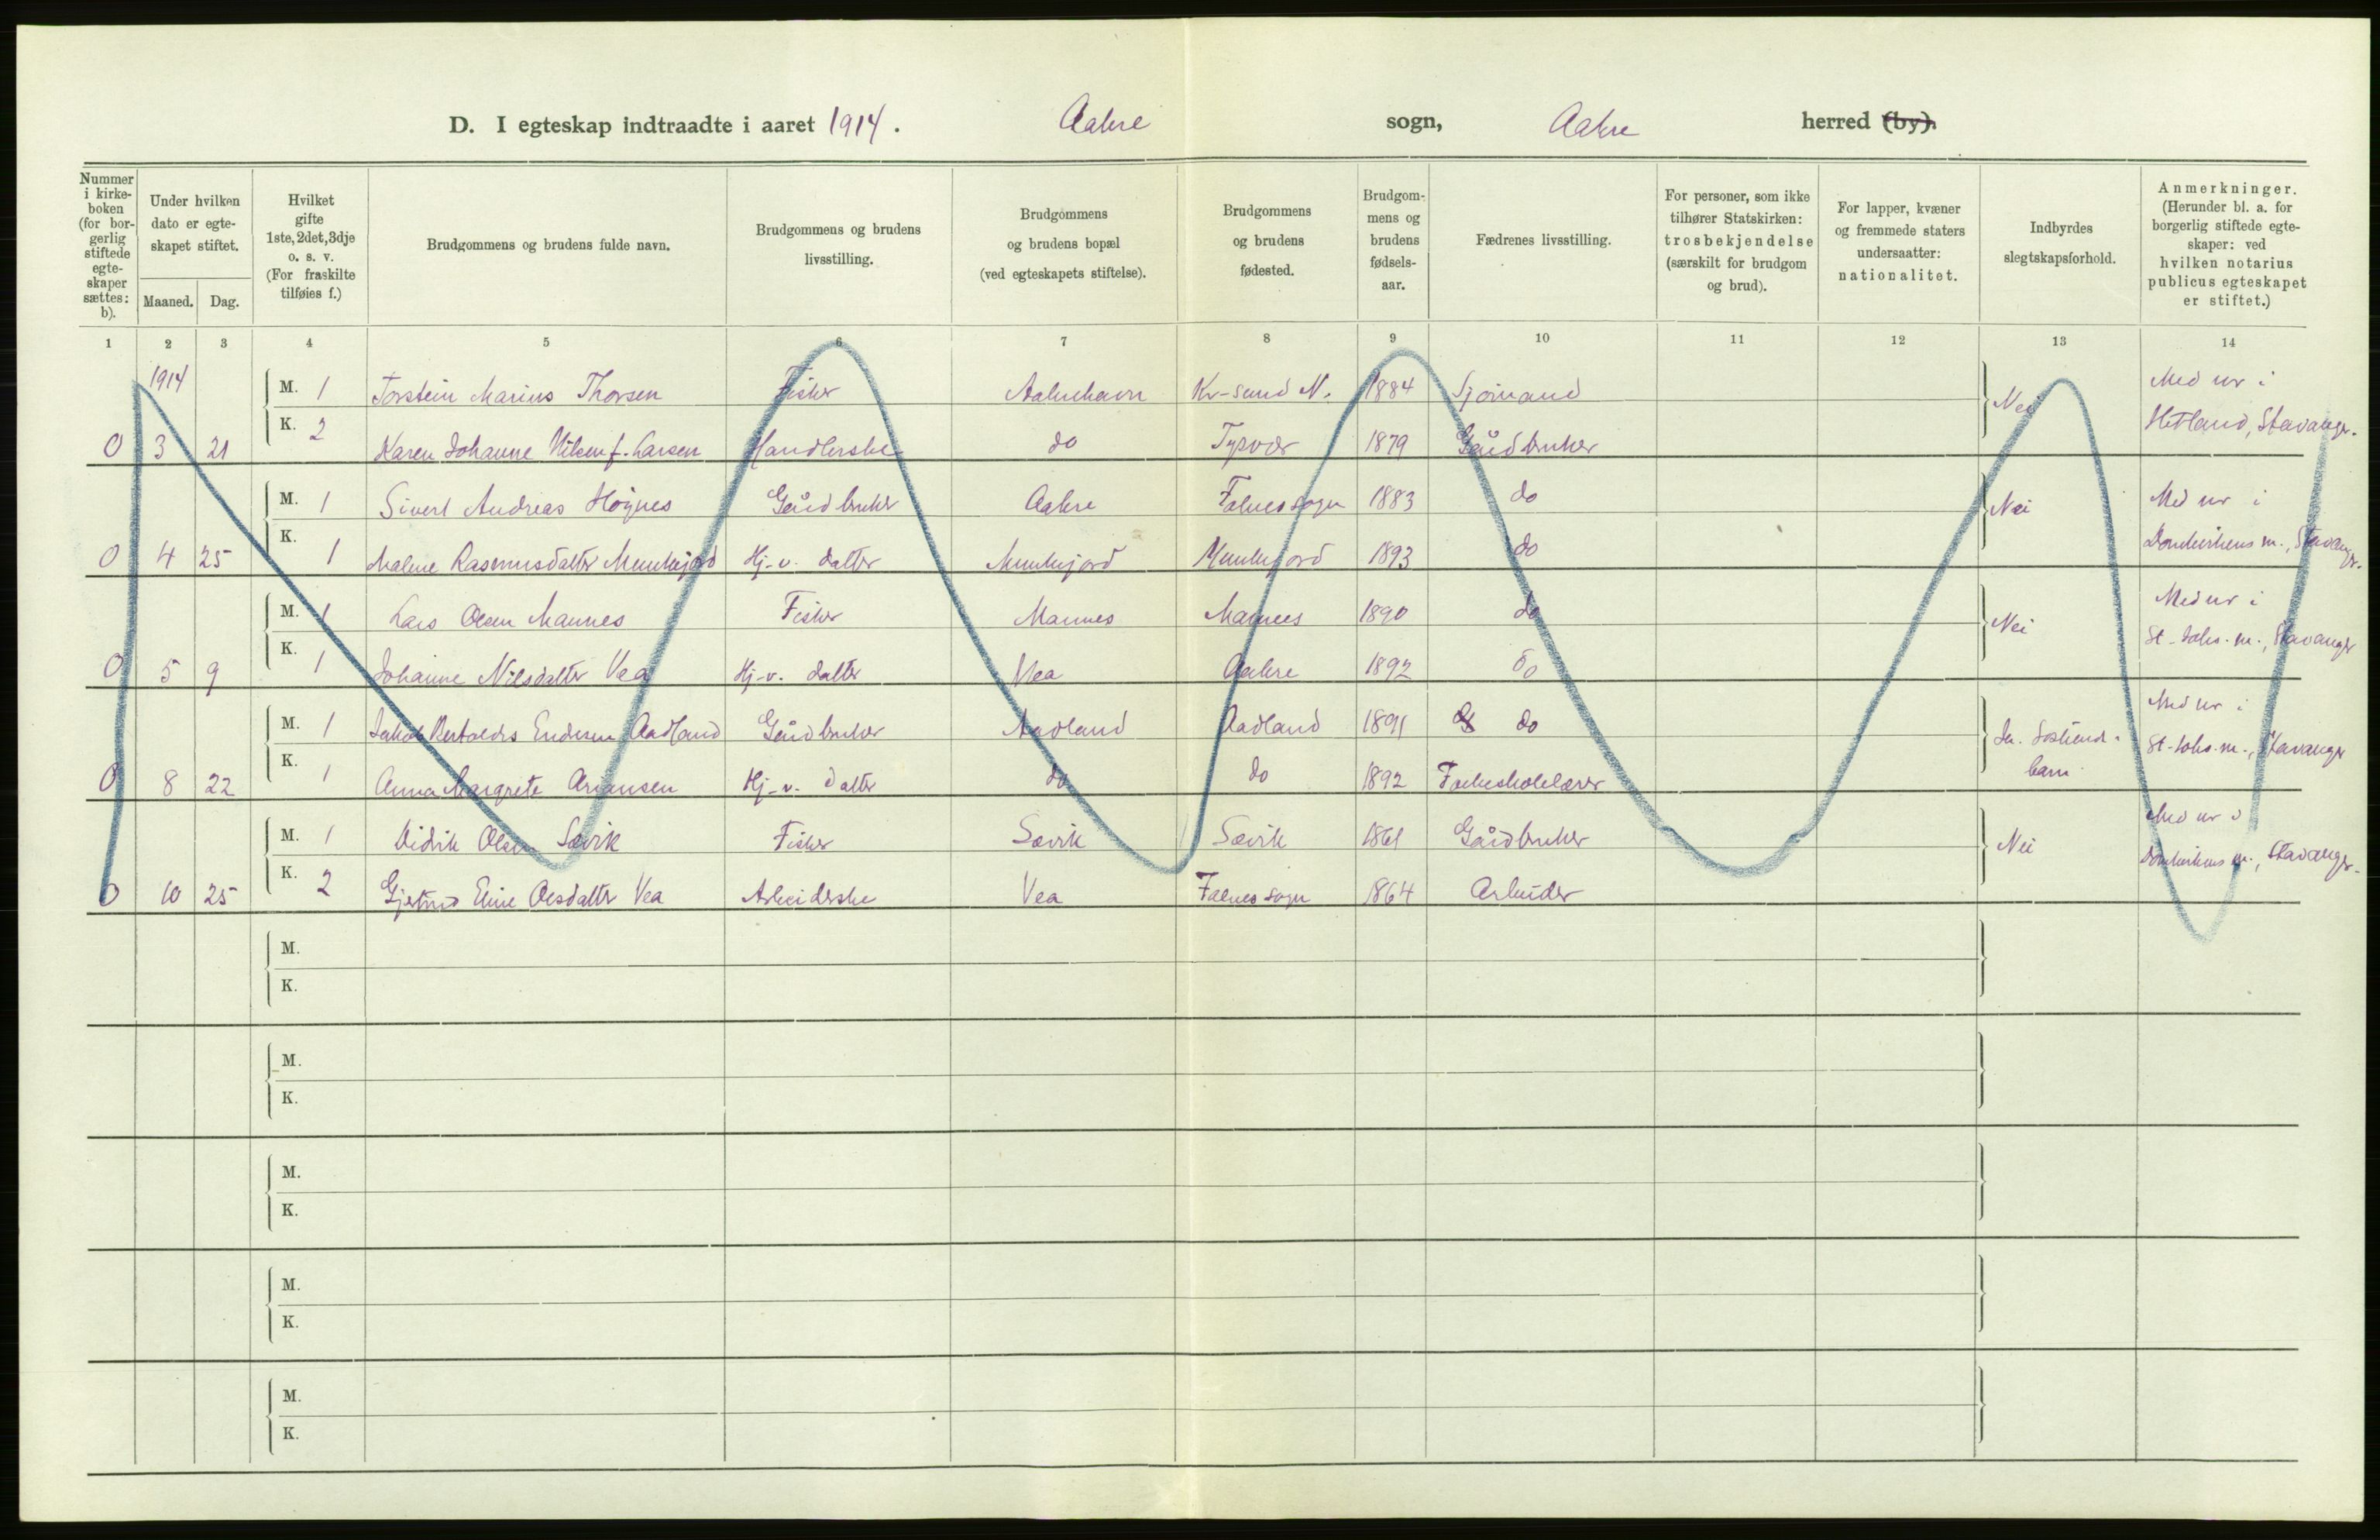 D. I egteskap indtraadte i aaret 1914. Aakre sogn, Aakre herred (by).
Nummer i kirke-boken (for bor-gerlig stiftede egte-skaper sættes: b).
Under hvilken dato er egte-skapet stiftet.
Maaned. Dag.
Hvilket gifte 1ste, 2det, 3dje o. s. v. (For fraskilte tilføies f.)
Brudgommens og brudens fulde navn.
Brudgommens og brudens livsstilling.
Brudgommens og brudens bopæl (ved egteskapets stiftelse).
Brudgommens og brudens fødested.
Brudgom-mens og brudens fødsels-aar.
Fædrenes livsstilling.
For personer, som ikke tilhører Statskirken: trosbekjendelse (særskilt for brudgom og brud).
For lapper, kvæner og fremmede staters undersaatter: nationalitet.
Indbyrdes slegtskapsforhold.
Anmerkninger. (Herunder bl. a. for borgerlig stiftede egte-skaper: ved hvilken notarius publicus egteskapet er stiftet.)
1 2 3 4 5 6 7 8 9 10 11 12 13 14
1914 M. 1 Torstein Marius Thorsen Fisker Aakrehavn Kr-sund N. 1884 Sjømand Nei Med ur i
0 3 21 K. 2 Karen Johanne Nilsen f. Larsen Handlerske do Tysvær 1879 Gårdbruker Hetland, Stavanger.
M. 1 Sivert Andreas Høynes Gårdbruker Aakre Falnes sogn 1883 do Nei Med ur i
0 4 25 K. 1 Malene Rasmusdatter Munkejord Hj-v. datter Munkejord Munkejord 1893 do Domkirkens m., Stavanger.
M. 1 Lars Olsen Mannes Fisker Mannes Mannes 1890 do Nei Med ur i
0 5 9 K. 1 Johanne Nilsdatter Vea Hj-v. datter Vea Aakre 1892 do St-Johs. m., Stavanger
M. 1 Jakob Endresen Aadland Gårdbruker Aadland Aadland 1891 do Søskend- Med ur i
0 8 22 K. 1 Anna Margrete Ariansen Hj-v. datter do do 1892 Folkeskolelærer barn St-Johs. m., Stavanger
M. 1 Didrik Olsen Sævik Fisker Sævik Sævik 1861 Gårdbruker Nei Med ur i
0 10 25 K. 2 Gjertrud Eline Olsdatter Vea Arbeiderske Vea Falnes sogn 1864 Arbeider Domkirkens m., Stavanger.
M.
K.
M.
K.
M.
K.
M.
K.
M.
K.